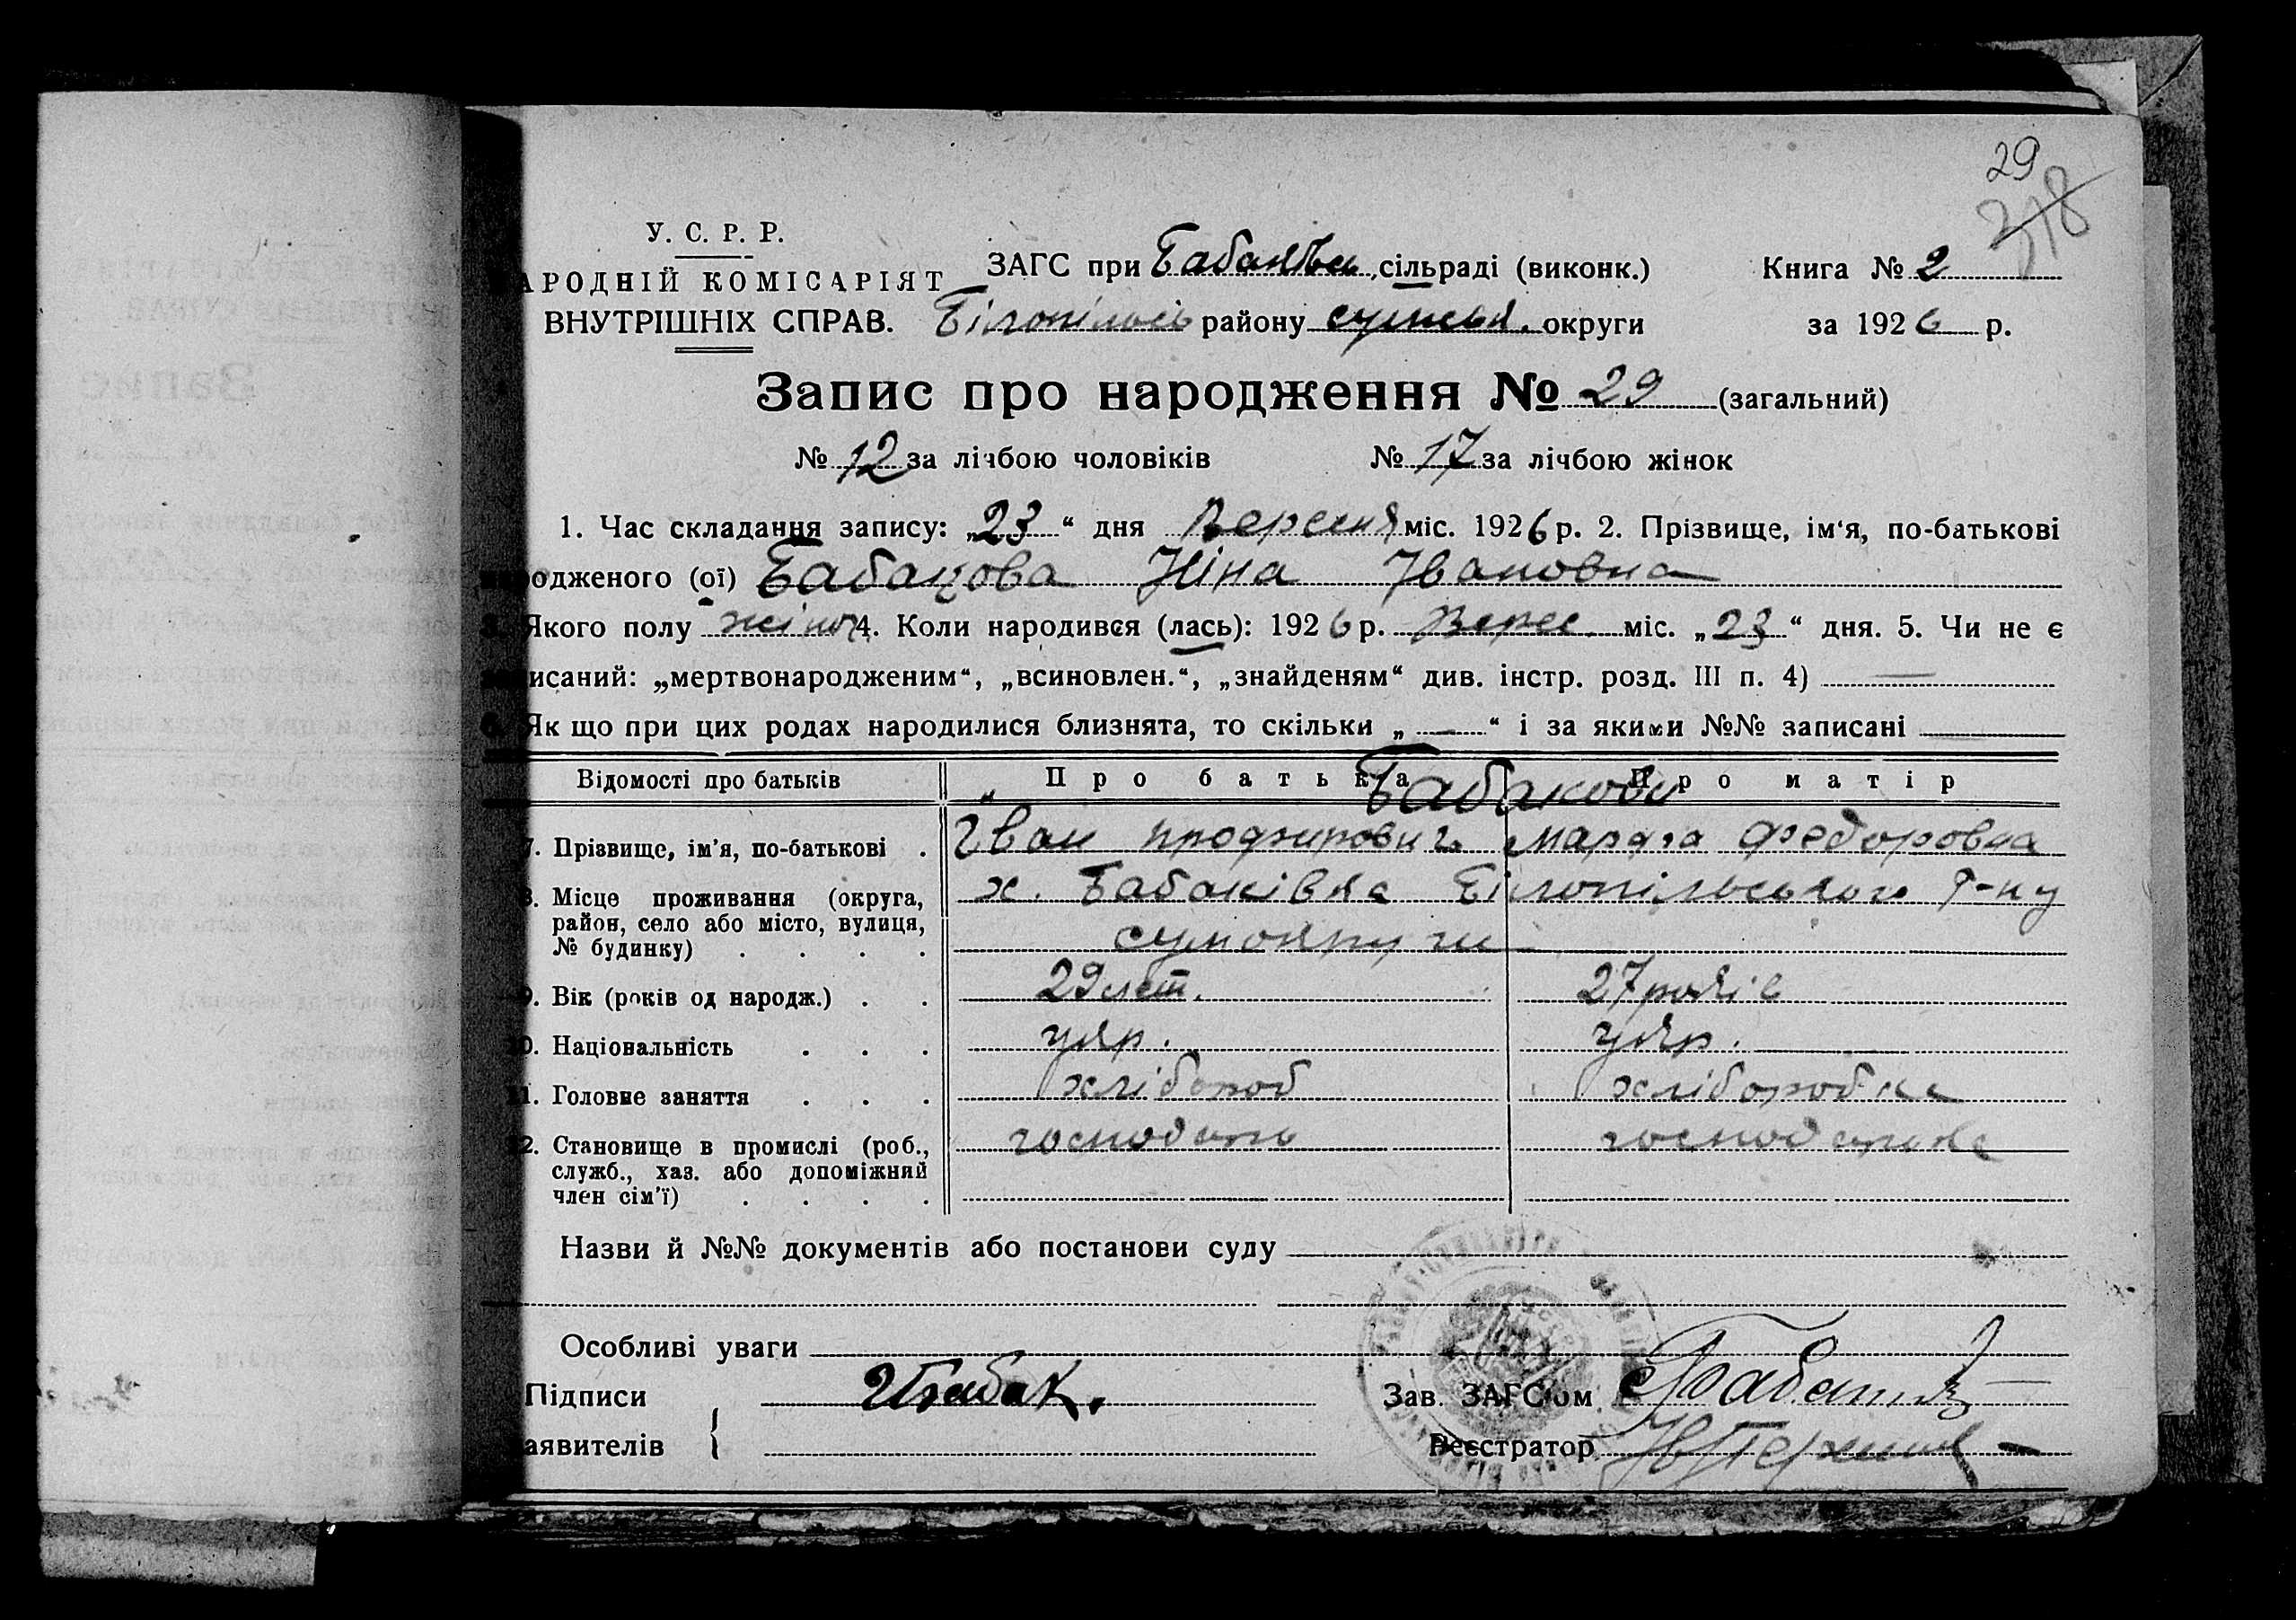 29
318
У. С. Р. Р.
АРОДНІЙ КОМІСАРІЯТ
ВНУТРІШНІХ СПРАВ.
ЗАГС при сільраді (виконк.)
Білопільсь району сумськ. округи
Книга № 2
за 1926 р.
Запис про народження № 29 (загальний)
№ 12 за лічбою чоловіків № 17 за лічбою жінок
1. Час складання запису: „23“ дня Вересня міс. 1926 р. 2. Прізвище, ім‘я, по-батькові
одженого (ої) Бабакова Ніна Івановна
3. Якого полу жіноч 4. Коли народився (лась): 1926 р. Верес. міс. „23“ дня. 5. Чи не є
исаний: „мертвонародженим“, „всиновлен.“, „знайденям“ див. інстр. розд. III п. 4) —
6. Як що при цих родах народилися близнята, то скільки „—“ і за якими №№ записані
Відомості про батьків Про батька Про матір
Бабакови
7. Прізвище, ім’я, по-батькові . Іван Марфа Федоровна
8. Місце проживання (округа, район, село або місто, вулиця, № будинку) . . . .
х. Бабаківка Білопільського р-ну
сумокруги
9. Вік (років од народж.) . . 29 лет. 27 років
10. Національність . . . укр. укр.
11. Головне заняття . . . хлібороб хліборобка
12. Становище в промислі (роб., служб., хаз. або допоміжний член сім’ї) . . . .
господарь господарка
Назви й №№ документів або постанови суду
Особливі уваги
Підписи
аявителів
Ибабак.
Зав. ЗАГС‘ом
Реєстратор